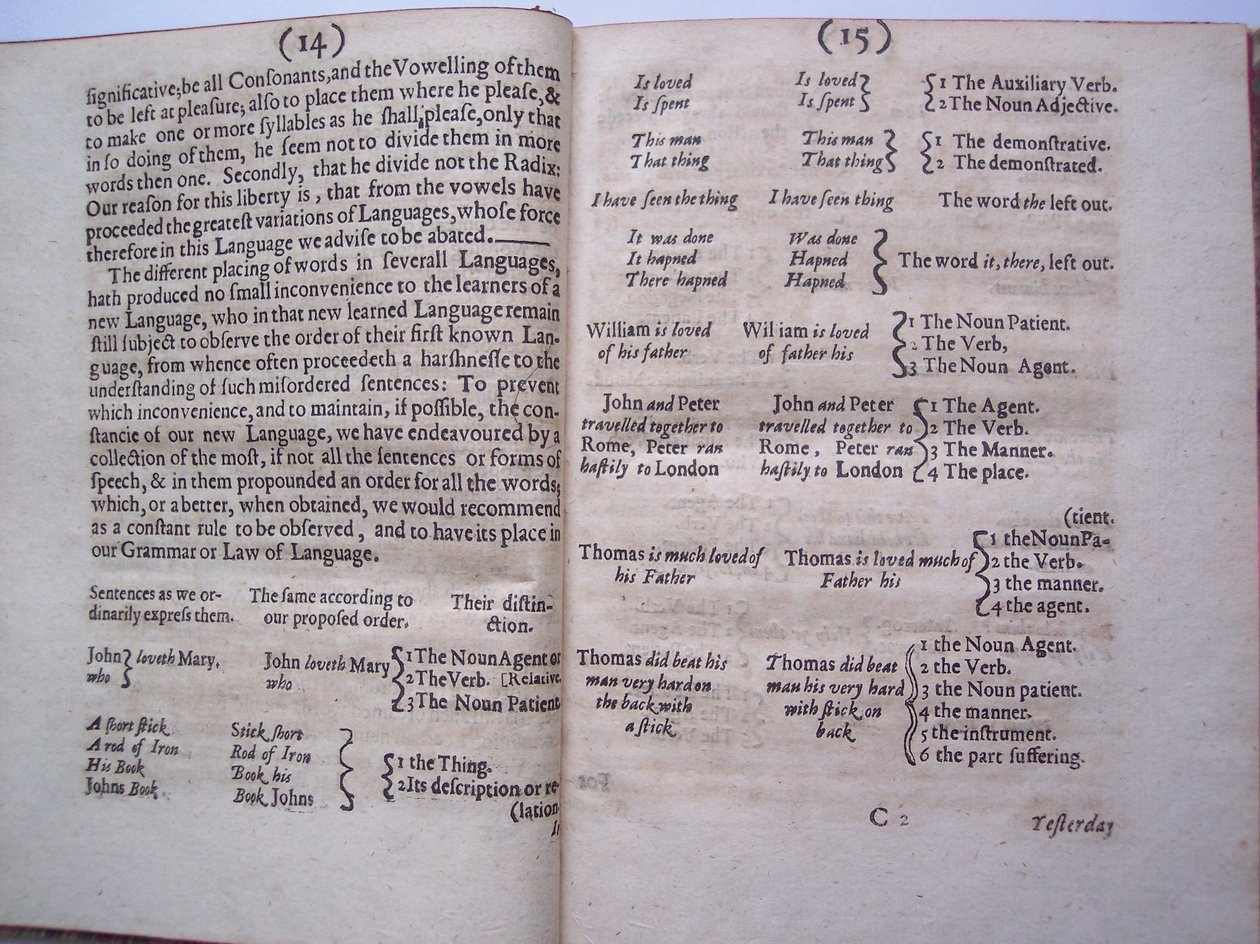 (14)
ſignificative; be all Conſonants, and the Vowelling of them
to be left at pleaſure; alſo to place them where he pleaſe, &
to make one or more ſyllables as he ſhall pleaſe, only that
in ſo doing of them, he ſeem not to divide them in more
words then one. Secondly, that he divide not the Radix:
Our reaſon for this liberty is, that from the vowels have
proceeded the greateſt variations of Languages, whoſe force
therefore in this Language we adviſe to be abated.
The different placing of words in ſeverall Languages,
hath produced no ſmall inconvenience to the learners of a
new Language, who in that new learned Language remain
ſtill ſubject to obſerve the order of their firſt known Lan-
guage, from whence often proceedeth a harſhneſſe to the
underſtanding of ſuch miſordered ſentences: To prevent
which inconvenience, and to maintain, if poſſible, the con-
ſtancie of our new Language, we have endeavoured by a
collection of the moſt, if not all the ſentences or forms of
ſpeech, & in them propounded an order for all the words;
which, or a better, when obtained, we would recommend
as a conſtant rule to be obſerved, and to have its place in
our Grammar or Law of Language.
Sentences as we or- The ſame according to Their diſtin-
dinarily expreſs them. our propoſed order. ction.
John } loveth Mary. John loveth Mary { 1 The Noun Agent or
who who 2 The Verb. [Relative.
3 The Noun Patient
A ſhort ſtick Stick ſhort
A rod of Iron Rod of Iron { 1 the Thing.
His Book Book his 2 Its deſcription or re-
Johns Book Book Johns (lation
I
(15)
Is loved Is loved } { 1 The Auxiliary Verb.
Is ſpent Is ſpent 2 The Noun Adjective.
This man This man } { 1 The demonſtrative.
That thing That thing 2 The demonſtrated.
I have ſeen the thing I have ſeen thing The word the left out.
It was done Was done
It hapned Hapned } The word it, there, left out.
There hapned Hapned
William is loved Wil iam is loved { 1 The Noun Patient.
of his father of father his 2 The Verb,
3 The Noun Agent.
John and Peter John and Peter { 1 The Agent.
travelled together to travelled together to 2 The Verb.
Rome, Peter ran Rome, Peter ran 3 The Manner.
haſtily to London haſtily to London 4 The place.
(tient.
Thomas is much loved of Thomas is loved much of { 1 the Noun Pa-
his Father Father his 2 the Verb.
3 the manner.
4 the agent.
Thomas did beat his Thomas did beat { 1 the Noun Agent.
man very hard on man his very hard 2 the Verb.
the back with with ſtick on 3 the Noun patient.
a ſtick back 4 the manner.
5 the inſtrument.
6 the part ſuffering.
C 2 Yeſterday